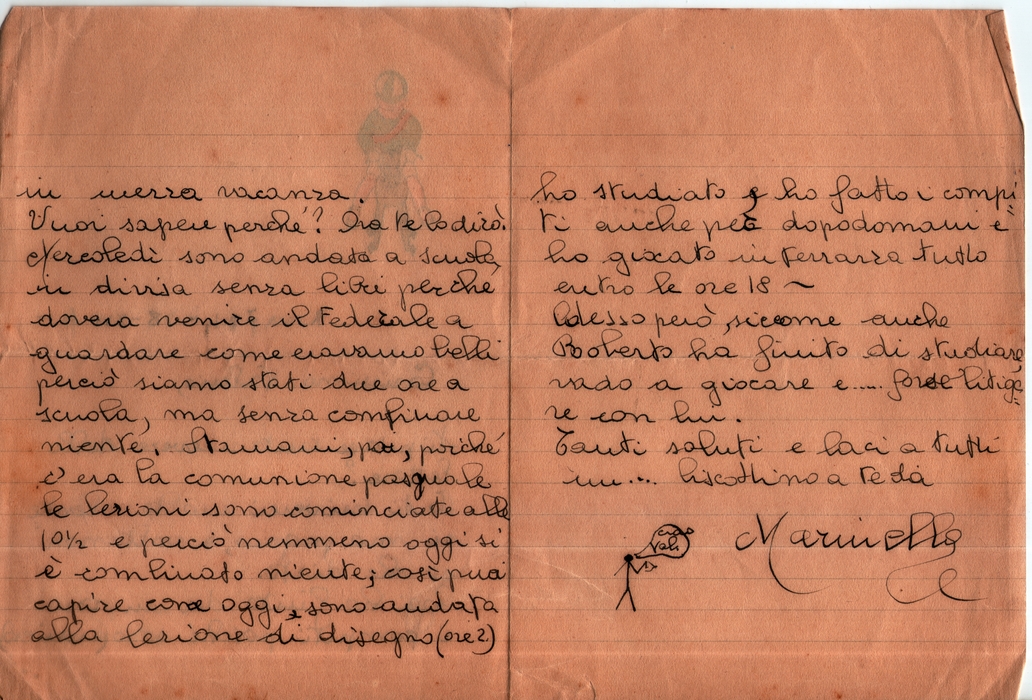 in mezza vacanza.
Vuoi sapere perché? Ora te lo dirò.
Mercoledì sono andata a scuola,
in divisa senza libri perché
doveva venire il Federale a
guardare come eravamo belli
perciò siamo stati due ore a
scuola, ma senza combinare
niente. Stamani, poi, poiché
c'era la comunione pasquale
le lezioni sono cominciate alle
10½ e perciò nemmeno oggi si
è combinato niente; così puoi
capire come oggi, sono andata
alla lezione di disegno (ore 2.)
ho studiato e ho fatto i compi=
ti anche per dopodomani e
ho giocato in terrazza tutto
entro le ore 18 ~
Adesso però, siccome anche
Roberto ha finito di studiare
vado a giocare e..... forse litige=
re con lui.
Tanti saluti e baci a tutti
un.... biscottino a te da
Marinella